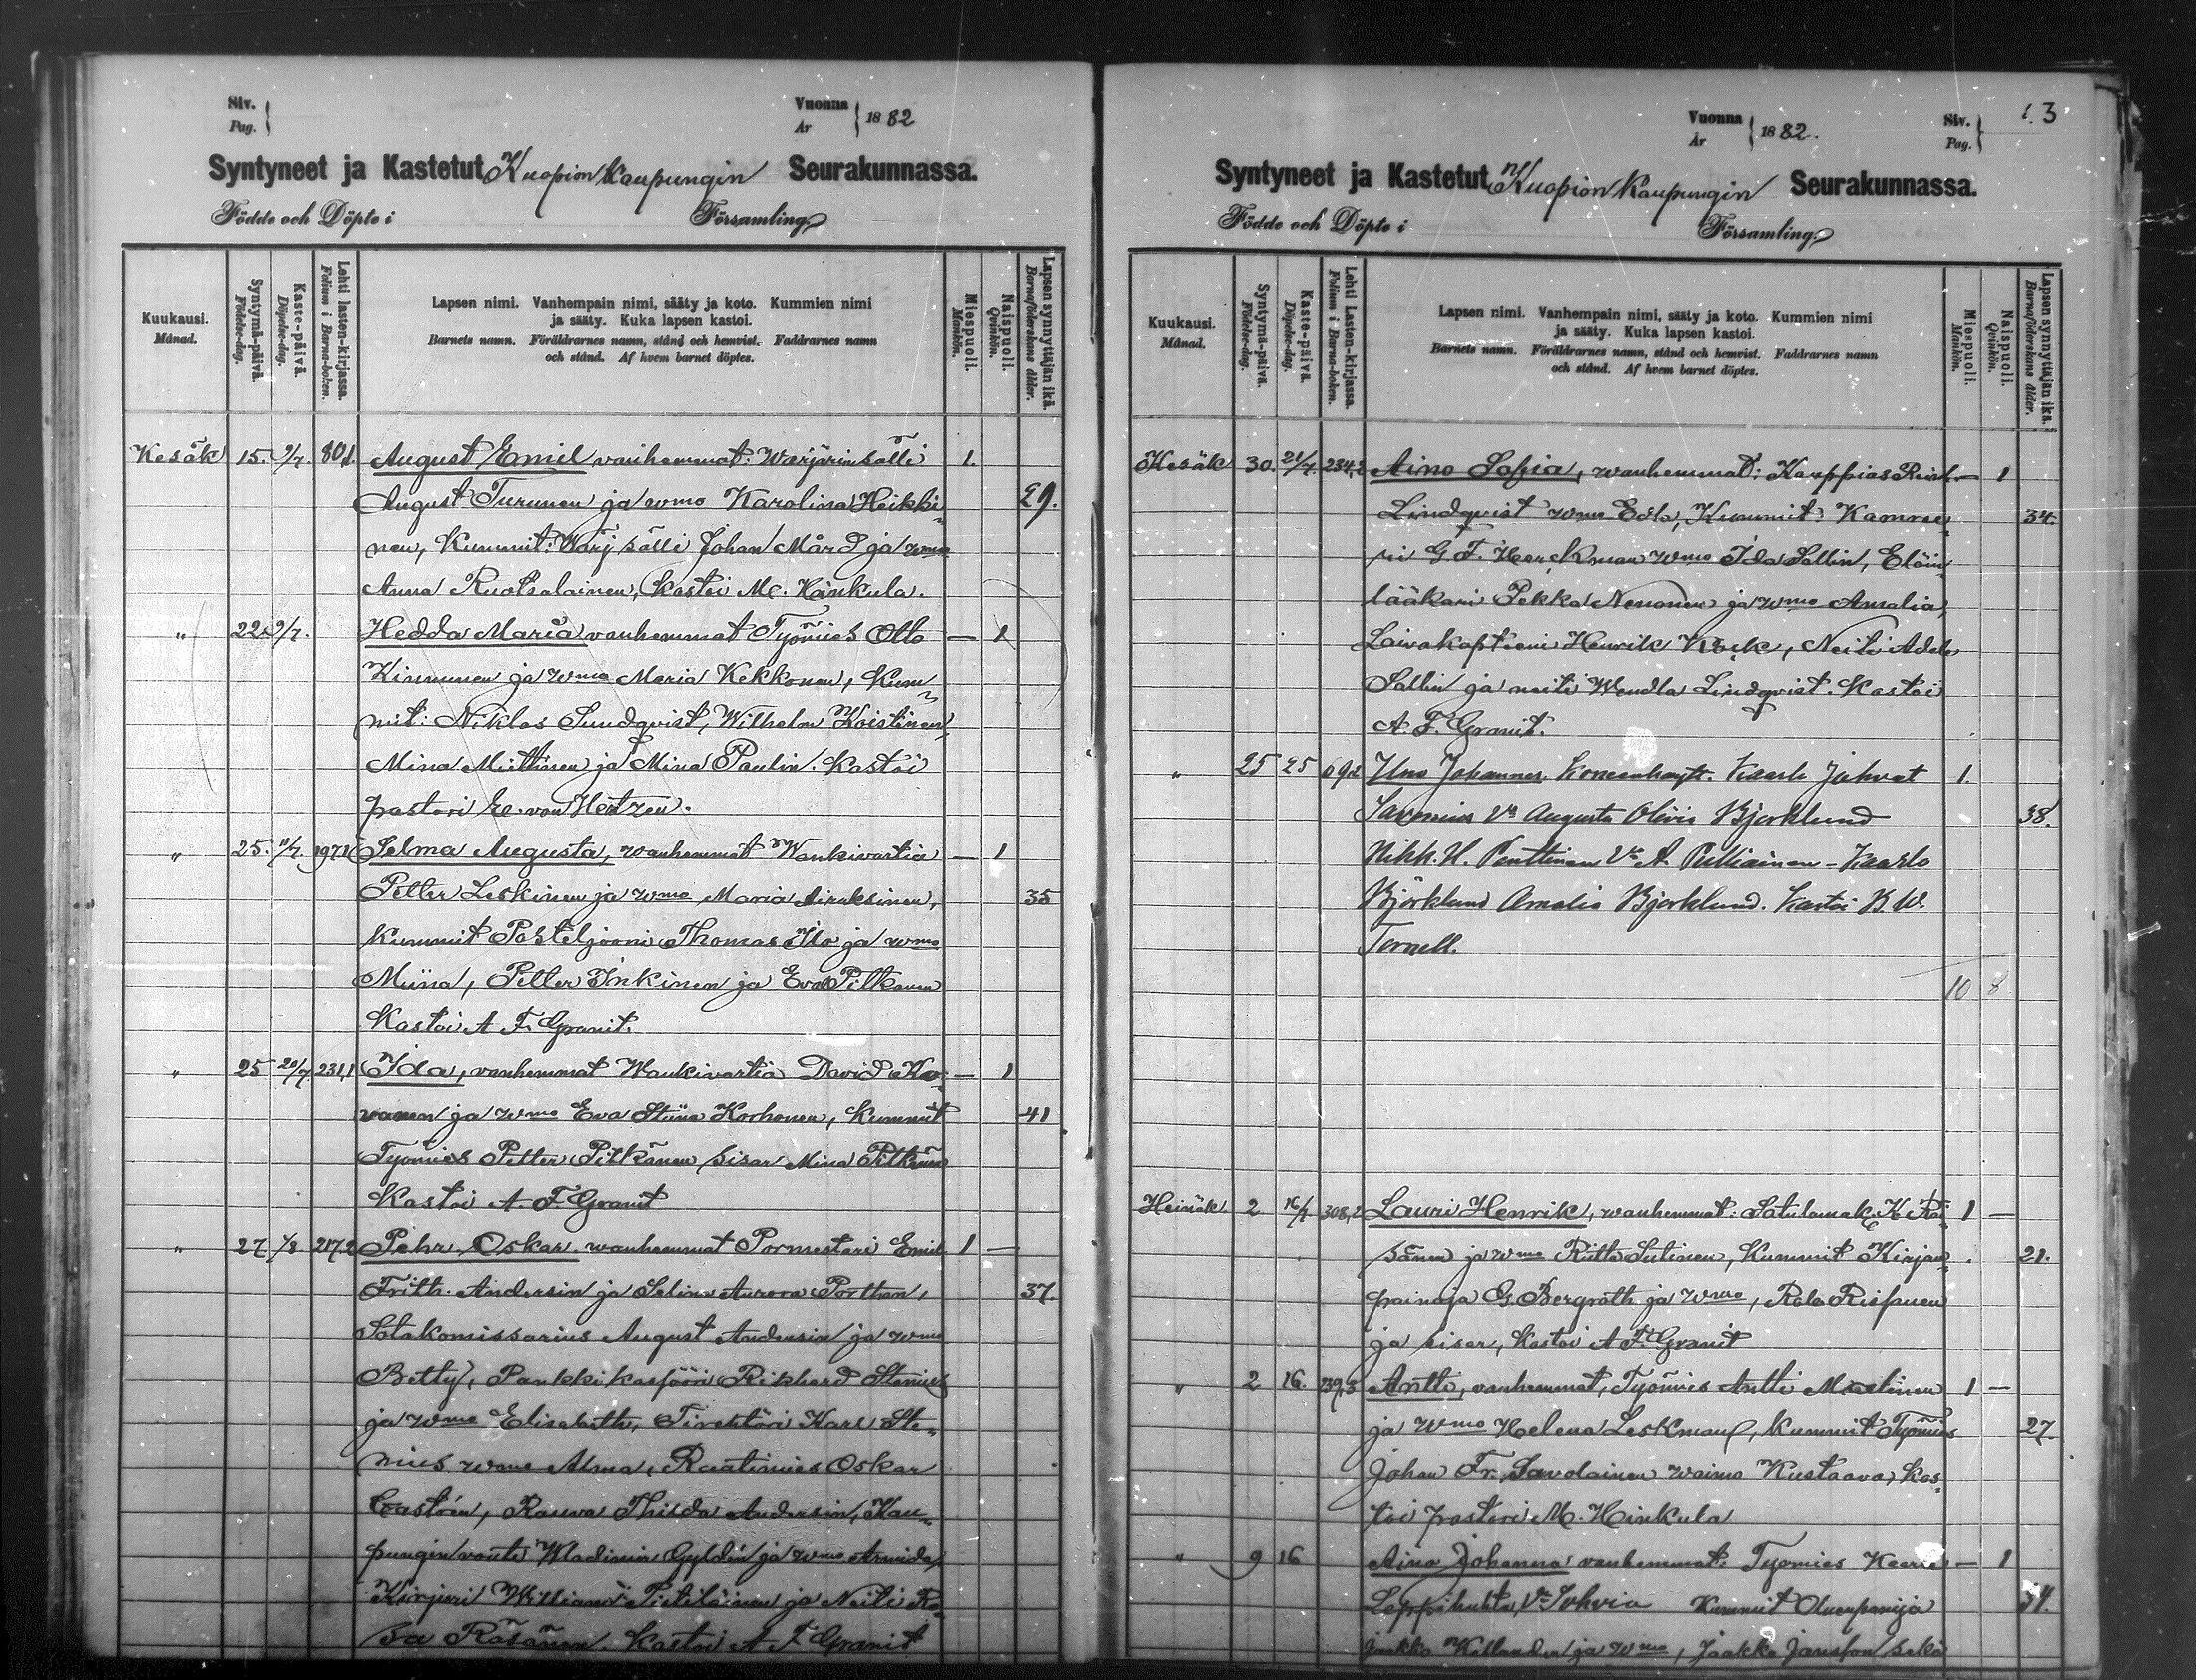 Siv.
Pag.
Vuonna
År
1882
Syntyneet ja Kastetut Kuopion Kaupungin Seurakunnassa.
Födde och Döpte i Församling
Kuukausi.
Månad.
Syntymä-päivä.
Födelse-dag.
Kaste-päivä.
Döpelse-dag.
Lehti lasten-kirjassa.
Folium i Barna-boken.
Lapsen nimi. Vanhempain nimi, sääty ja koto. Kummien nimi
ja sääty. Kuka lapsen kastoi.
Barnets namn. Föräldrarnes namn, stånd och hemvist. Faddrarnes namn
och stånd. Af hvem barnet döptes.
Miespuoli.
Mankön.
Naispuoli.
Qvinkön.
Lapsen synnyttäjän ikä.
Barnaföderskans ålder.
Kesäk 15. 9/7. August Emil vanhemmat: Warjärin sälli 1.
August Turunen ja wmo Karolina Heikki- 29.
nen, Kummit: Wärj sälli Johan Mård ja wmo
Anna Ruotsalainen, Kastoi M. Hinkula.
" 22 9/7. Hedda Maria vanhemmat Työmies Otto — 1
Kinnunen ja wmo Maria Kekkonen, Kum-
mit: Niklas Sundqvist, Wilhelm Koistinen,
Mina Miettinen ja Mina Paulin. Kastoi
pastori E. von Hertzen.
" 25. 11/7. Selma Augusta, vanhemmat Wankivartia — 1
Petter Leskinen ja wmo Maria Airaksinen, 35
Kummit Posteljooni Thomas Ilo ja wmo
Miina, Petter Inkinen ja Eva Pitkänen
Kastoi A F. Granit.
" 25 20/7. 231,1 Ida, vanhemmat Wankivartia David Ko- — 1
vanen ja wmo Eva Stiina Korhonen, Kummit 41
Työmies Petter Pitkänen sisar Mina Pitkänen
Kastoi A. F Granit
" 27 1/8 217,2 Pehr Oskar vanhemmat Pormestari Emil 1 —
Frith. Andersin ja Selina Aurora Porthan, 37.
Sotakomissarius August Andersin ja wmo
Betty, Pankki kasööri Rikhard Stenius
ja wmo Elisabeth, Tirehtöri Karl Ste-
nius wmo Alma, Raatimies Oskar
Castrén, Rouva Thilda Andersin, Kau-
pungin vouti Wladimir Gyldén ja wmo Armida,
Kirjuri William Pietiläinen ja Neiti Ro-
sa Räsänen. Kastoi A F Granit
Vuonna
År
1882.
Siv.
Pag.
3
Syntyneet ja Kastetut Kuopion Kaupungin Seurakunnassa.
Födde och Döpte i Församling
Kuukausi.
Månad.
Syntymä-päivä.
Födelse-dag.
Kaste-päivä.
Döpelse-dag.
Lehti Lasten-kirjassa.
Folium i Barna-boken.
Lapsen nimi. Vanhempain nimi, sääty ja koto. Kummien nimi
ja sääty. Kuka lapsen kastoi.
Barnets namn. Föräldrarnes namn, stånd och hemvist. Faddrarnes namn
och stånd. Af hvem barnet döptes.
Miespuoli.
Mankön.
Naispuoli.
Qvinkön.
Lapsen synnyttäjän ikä.
Barnaföderskans ålder.
Kesäk 30. 21/7. 234,2 Aino Sofia, wanhemmat: Kauppias — 1
Lindqvist wmo Edla, Kummit: Kamree- 34.
ri G. F. Herckman wmo Ida Sallin, Eläin-
lääkäri Pekka Nenonen ja wmo Amalia,
Laivakapteeni Henrik Köck, Neiti Adele
Sallin ja neiti Wendla Lindqvist. Kastoi
A. F. Granit.
" 25 25 692 Uno Johannes Kaarle 1.
Savonius Vo Augusta Olivia Bjorklund 38.
Nikk. H. Penttinen Vo A. Pulliainen - Kaarlo
Björklund Amalia Bjorklund. Kastoi K. W.
Tornell.
10 8
Heinäk 2 16/7 308,2 Lauri Henrik, wanhemmat: Satulamak. K. Räi- 1 —
sänen ja wmo Riitta Sutinen, Kummit Kirjan- 21.
painaja G. Bergroth ja wmo,
ja sisar, Kastoi A F. Granit
" 2 16. 39,3 Antti, vanhemmat, Työmies Antti 1 —
ja wmo Helena Leskman, Kummit Työmies 27.
Johan Fr. Savolainen waimo Kustaava, Kas-
toi pastori M. Hinkula
" 9 16 Aina Johanna vanhemmat: Tyomies — 1
Leppihuhta, Vo Sohvia Kummit Oluenpanija
Jaakko ja wmo, Jaakko Jansson sekä